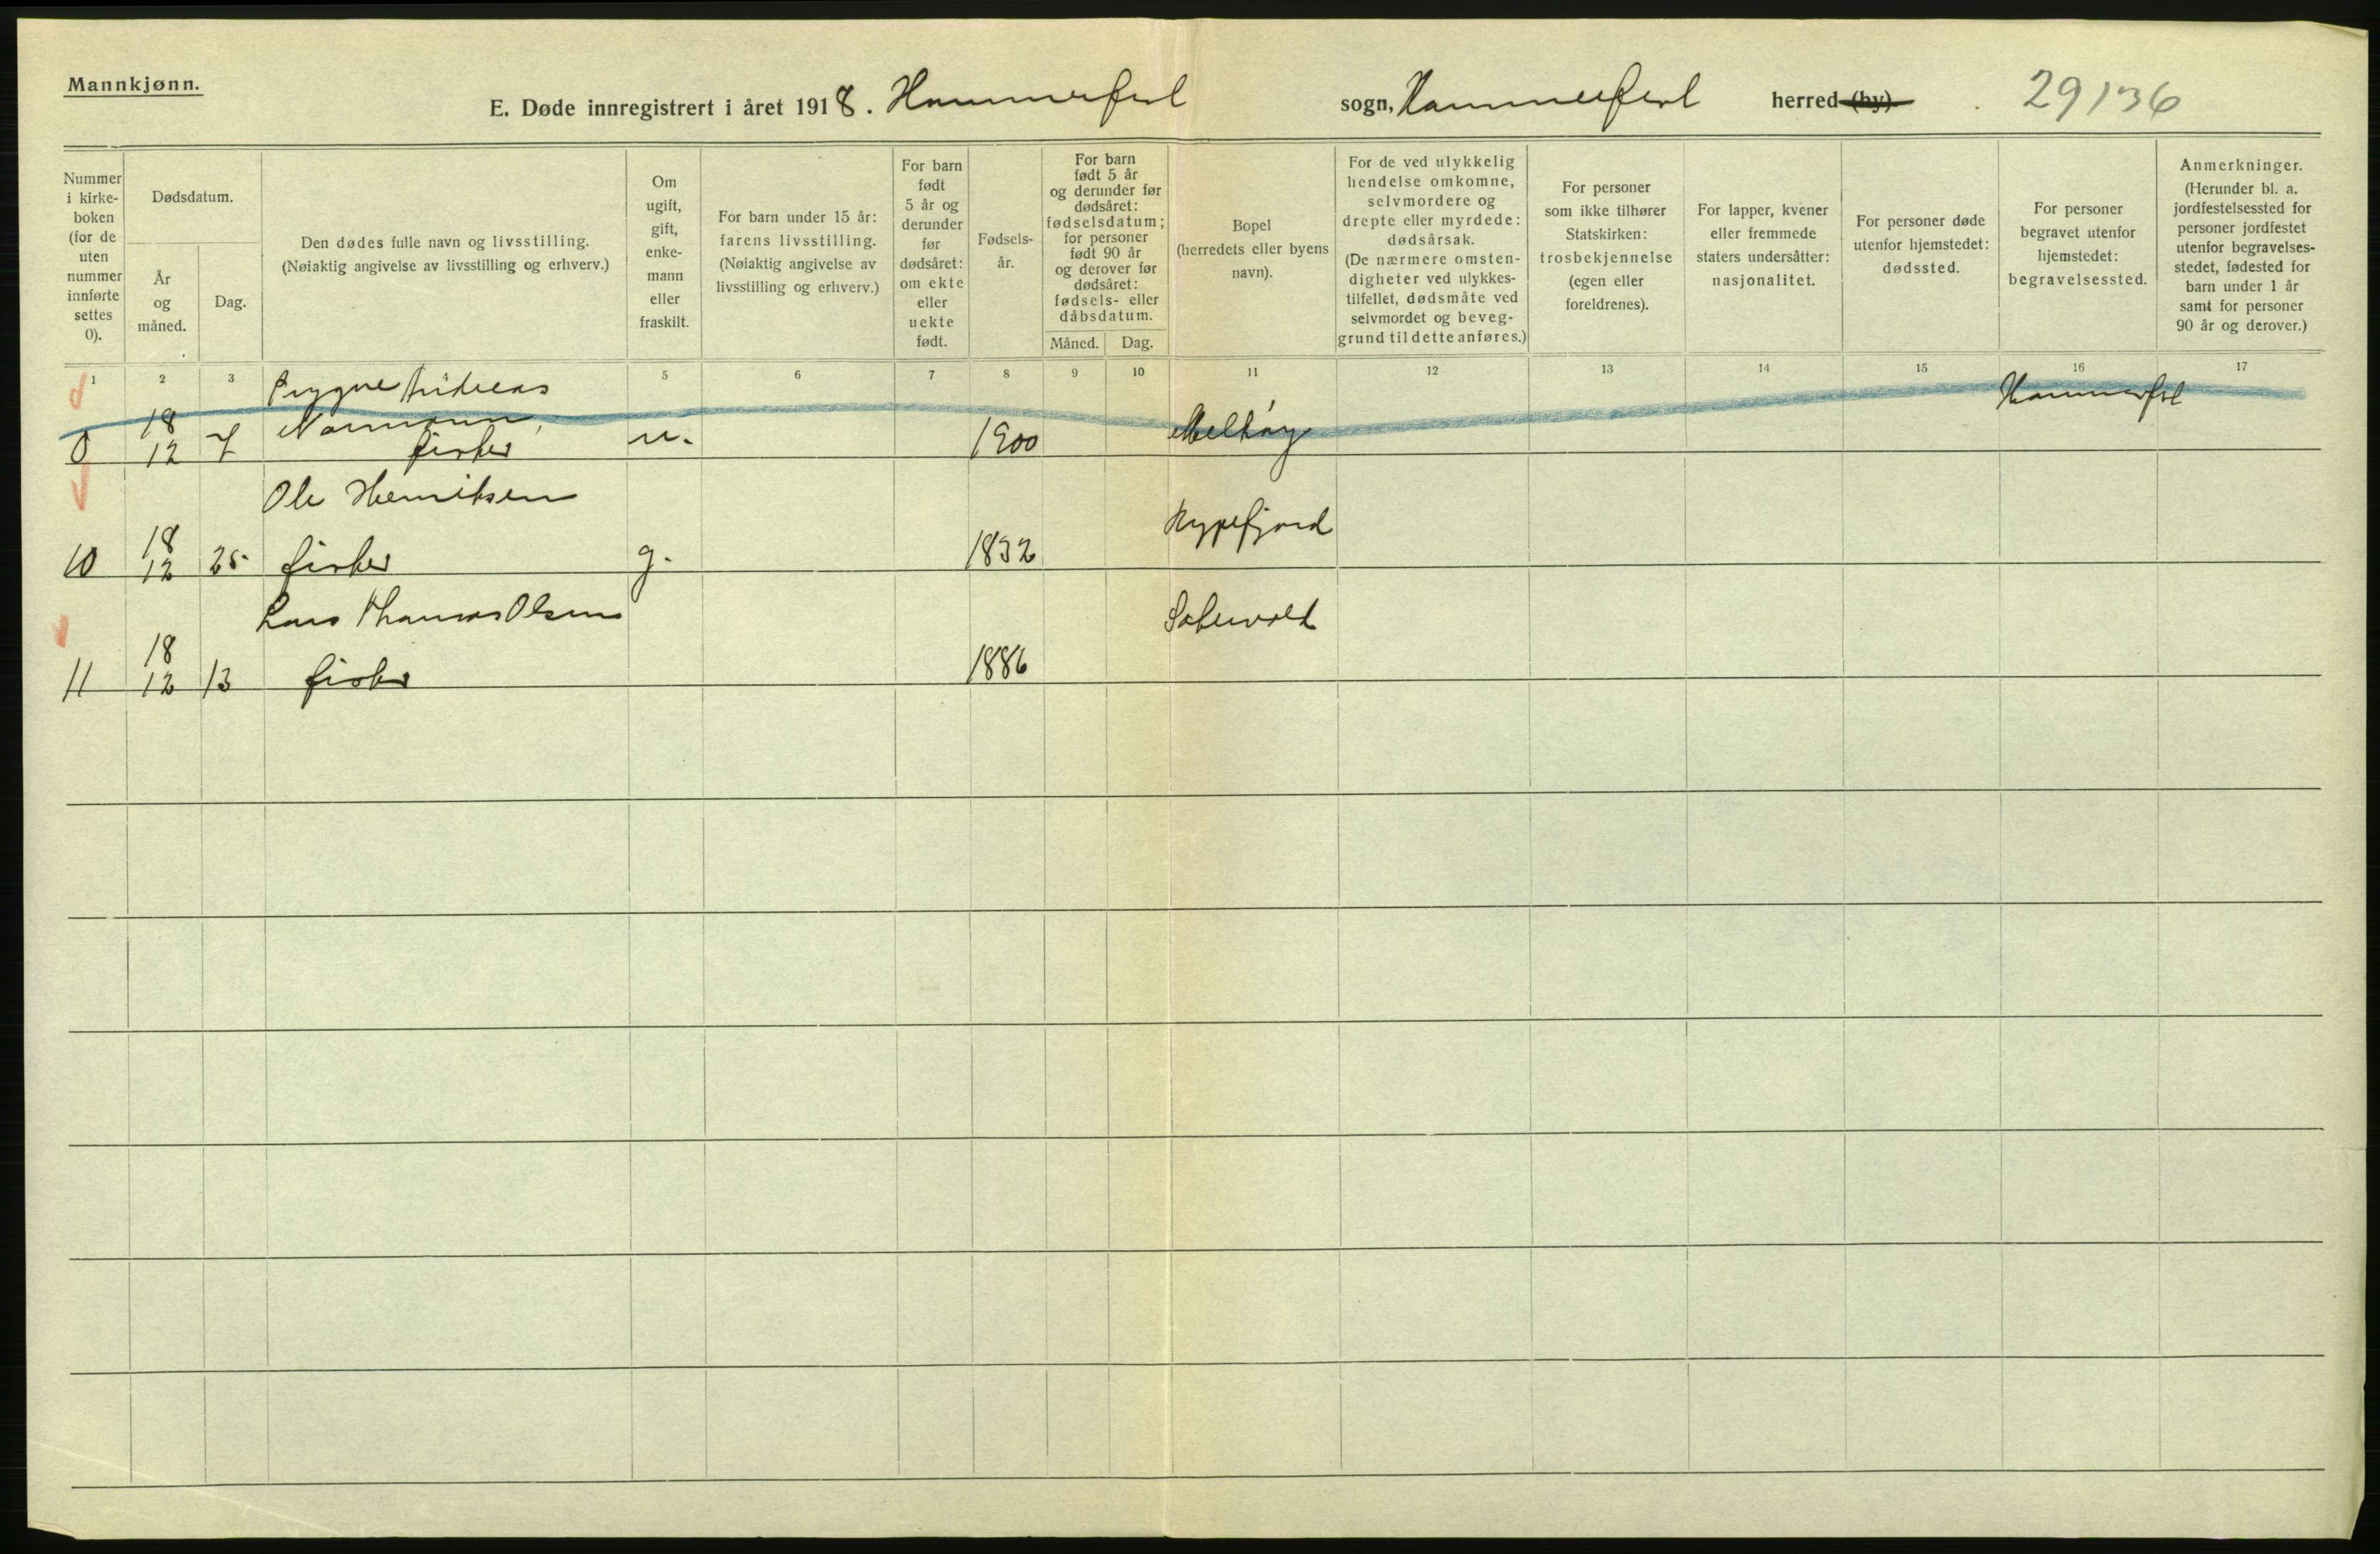 Mannkjønn.
E. Døde innregistrert i året 1918. Hammerfest sogn, Hammerfest herred (by). 29136
Nummer i kirke-boken (for de uten nummer innførte settes 0).
Dødsdatum.
År og måned.
Dag.
Den dødes fulle navn og livsstilling.
(Nøiaktig angivelse av livsstilling og erhverv.)
Om ugift, gift, enke-mann eller fraskilt.
For barn under 15 år:
farens livsstilling.
(Nøiaktig angivelse av
livsstilling og erhverv.)
For barn født 5 år og derunder før dødsåret: om ekte eller uekte født.
Fødsels-år.
For barn
født 5 år
og derunder før
dødsåret:
fødselsdatum;
for personer
født 90 år
og derover før
dødsåret:
fødsels- eller
dåbsdatum.
Måned. Dag.
Bopel
(herredets eller byens
navn).
For de ved ulykkelig
hendelse omkomne,
selvmordere og
drepte eller myrdede:
dødsårsak.
(De nærmere omsten-
digheter ved ulykkes-
tilfellet, dødsmåte ved
selvmordet og beveg-
grund til dette anføres.)
For personer
som ikke tilhører
Statskirken:
trosbekjennelse
(egen eller
foreldrenes).
For lapper, kvener
eller fremmede
staters undersåtter:
nasjonalitet.
For personer døde
utenfor hjemstedet:
dødssted.
For personer
begravet utenfor
hjemstedet:
begravelsessted.
Anmerkninger.
(Herunder bl. a.
jordfestelsessted for
personer jordfestet
utenfor begravelses-
stedet, fødested for
barn under 1 år
samt for personer
90 år og derover.)
1 2 3 4 5 6 7 8 9 10 11 12 13 14 15 16 17
Andreas
Normann, Hammerfest
18
0 12 7 fisker u. 1900
Ole Henriksen
18 Rypefjord
10 12 25 fisker g. 1832
Lars Thomas Olsen
18
11 12 13 fisker 1886